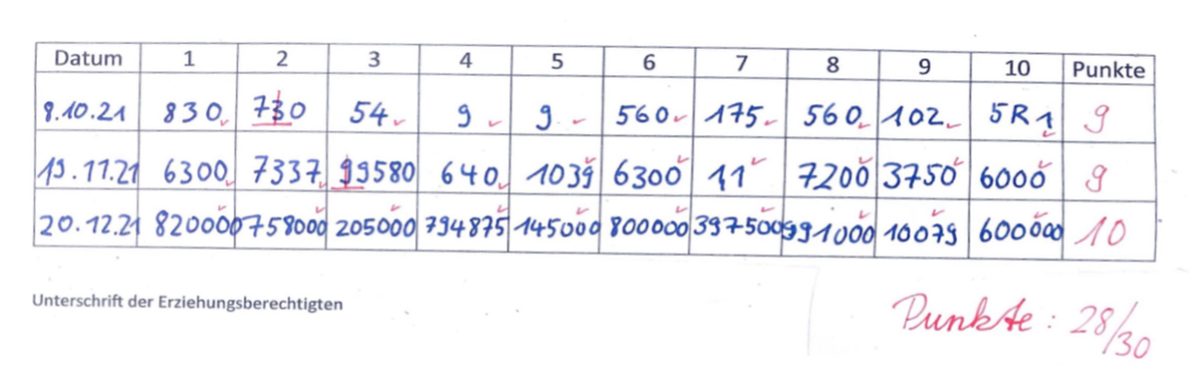 Datum 1 2 3 4 5 6 7 8 9 10 Punkte
8.10.21 830 730 54 9 9 560 175 560 102 5R1 9
19.11.21 6300 7337 99580 640 1039 6300 11 7200 3750 6000 9
20.12.21 820000 758000 205000 794875 145000 800000 397500 991000 10079 600000 10
Unterschrift der Erziehungsberechtigten
Punkte: 28/30